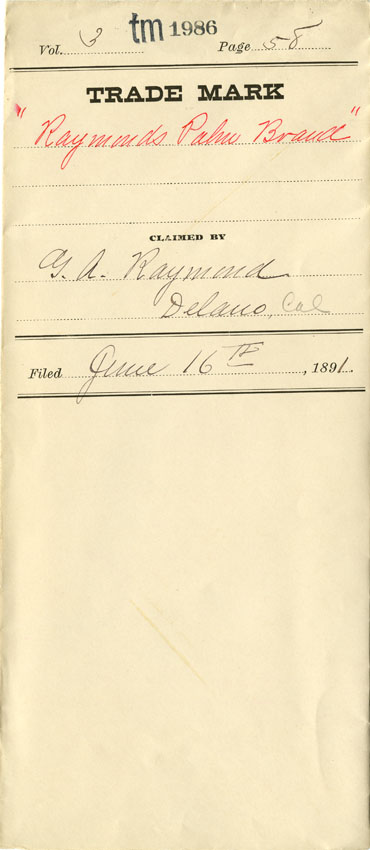 Vol. 3 tm 1986 Page 58
TRADE MARK
"Raymonds Palm Brand"
CLAIMED BY
G. A. Raymond
Delano, Cal
Filed June 16TH, 1891.